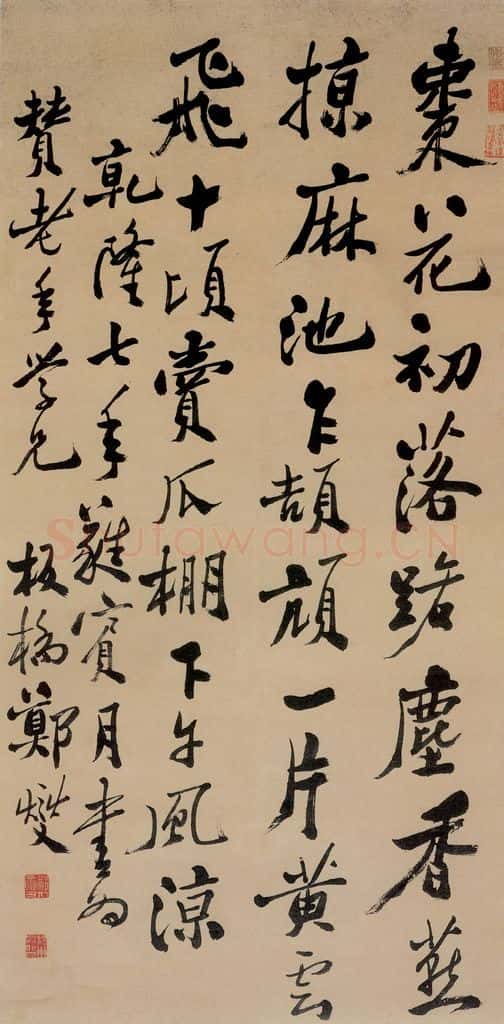 棗花初落路塵香燕
掠麻池乍頡頏一片黃雲
飛十頃賣瓜棚下午風涼
乾隆七年蕤賓月書為
贊老年学兄 板橋鄭燮
Shufawang.CN